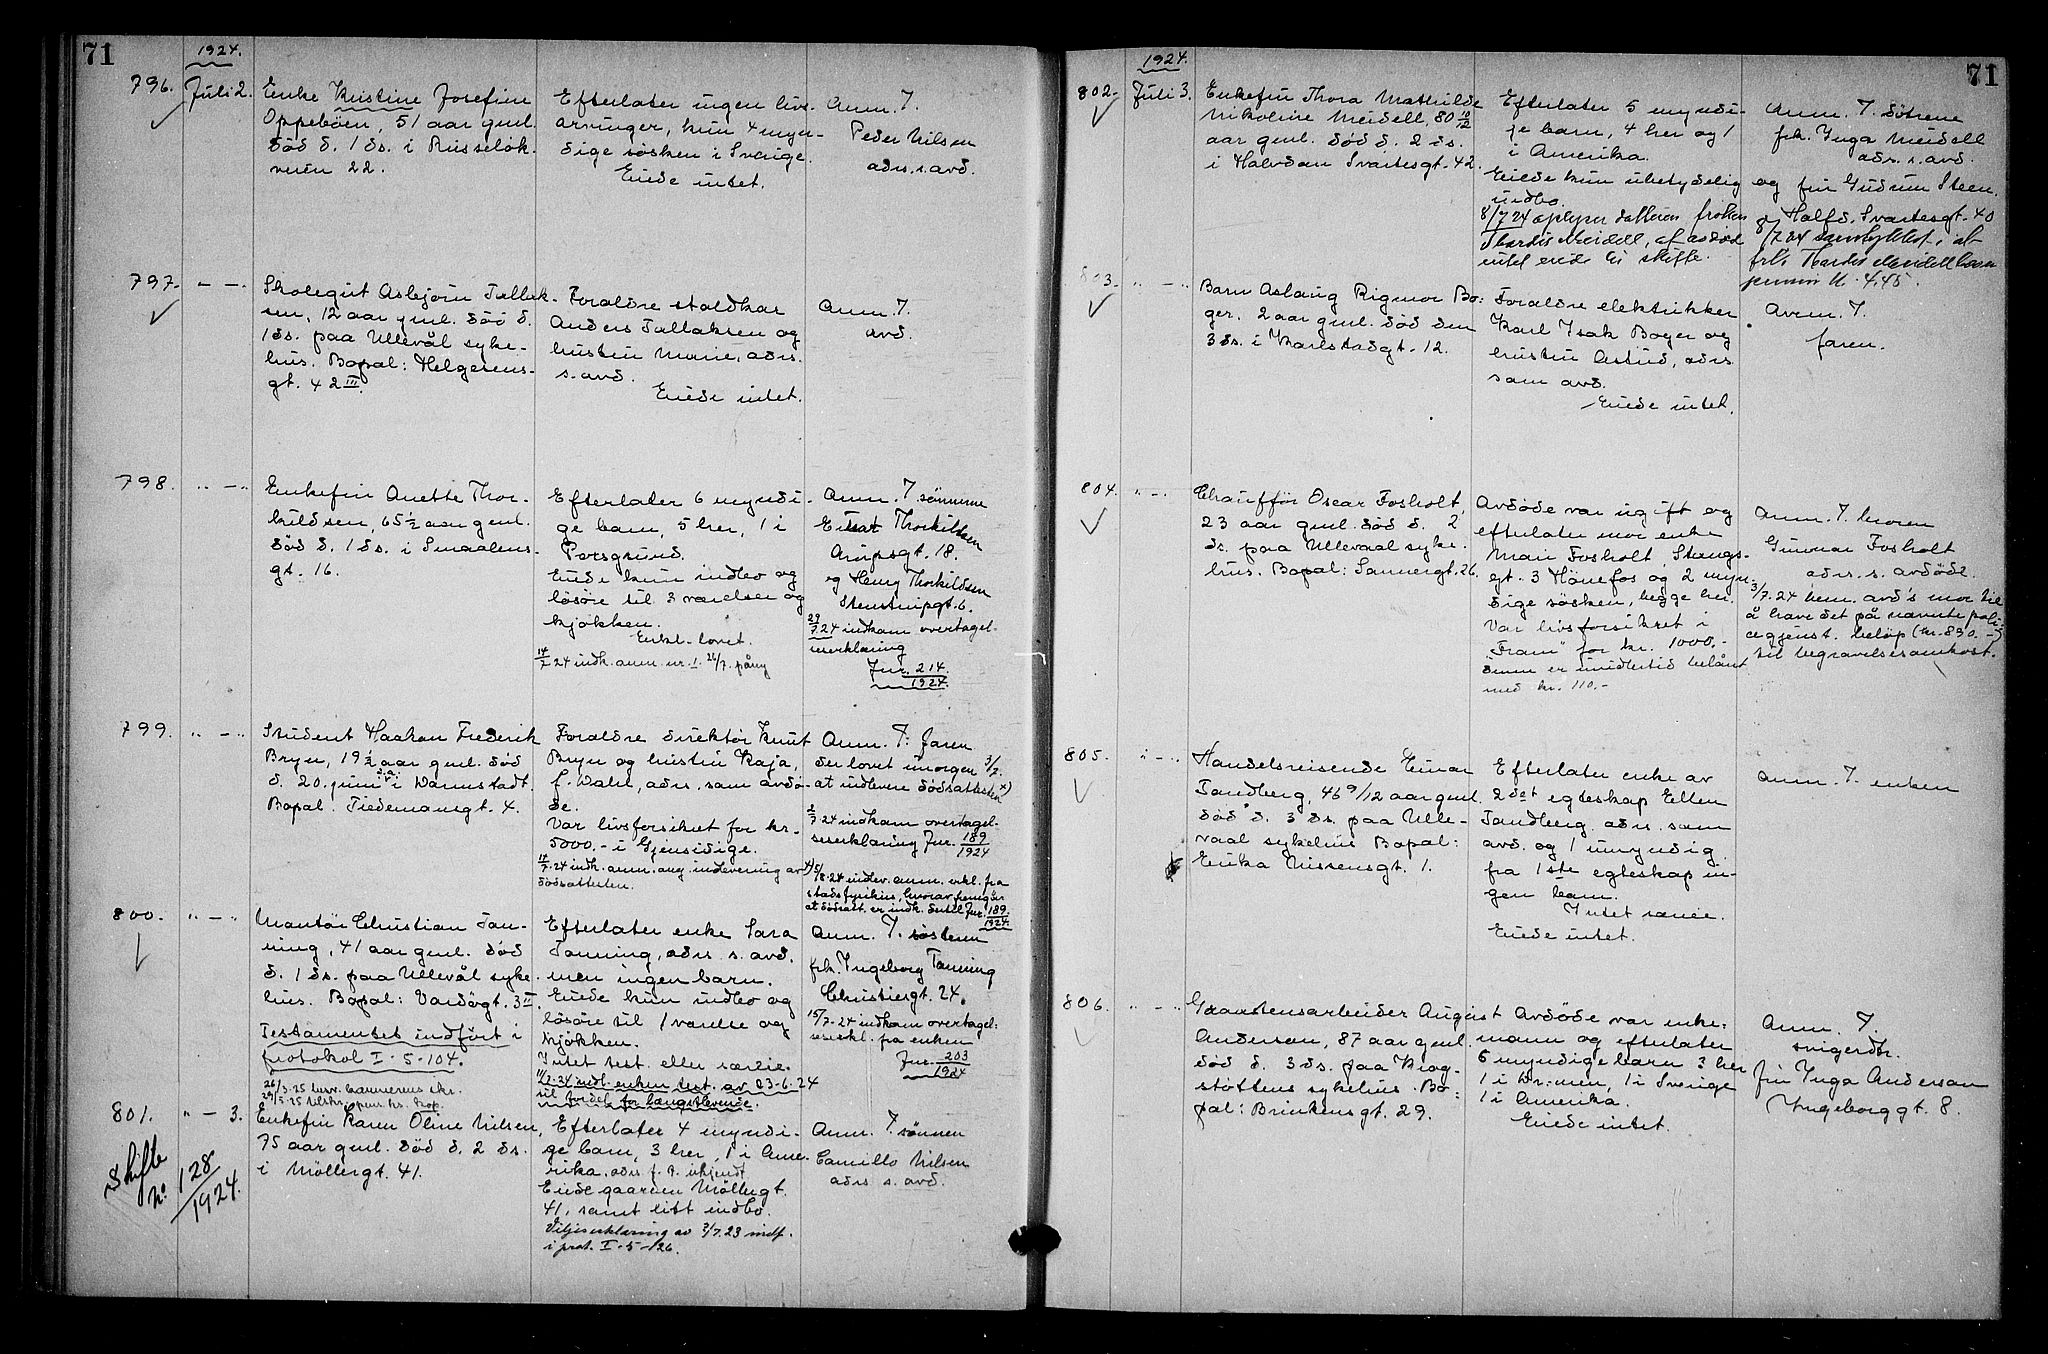 71
1924.
796. Juli 2. Enke Kristine Josefine
Oppeböen, 51 aar gml.
död d. 1 ds. i Russelök-
veien 22.
Efterlater ingen livs-
arvinger, kun 4 myn-
dige søsken i Sverige.
Eiede intet.
Anm. 7.
Peder Nilsen
adrs. s. avd.
797. — — Skolegut Asbjørn Tallak-
sen, 12 aar gml. död d.
1 ds. paa Ullevål syke-
hus. Bopal: Helgesens-
gt. 42 III.
Foraldre staldkar
Anders Tallaksen og
hustru Marie, adrs.
s. avd.
Eiede intet.
Anm. 7.
avd.
798. " — " Enkefru Anette Thor-
kildsen, 65 1/2 aar gml.
död d. 1 ds. i Smaalens-
gt. 16.
Efterlater 6 myndi-
ge barn, 5 her, 1 i
Porsgrund.
Eiede kun indbo og
løsøre til 3 værelser og
kjøkken.
Erkl. lovet.
14/7 24 indk. anm. nr. 1. 26/7. påny
Anm. 7. sönnene
Einar Thorkildsen
Arupsgt. 18.
og Henry Thorkildsen
Stenstrupgt. 6.
29/7.24 indkom overtagel-
seserklæring
Jnr. 214
1924.
799. " — " Student Haakon Frederik
Bryn, 19 1/2 aar gml. död
d. 20. juni d.a. i Darmstadt.
Bopal: Tiedemansgt. 4.
Foraldre direktör Knut
Bryn og hustru Kaja,
f. Wahl, adrs. som avdö-
de.
Var livsforsikret for kr.
5000.- i Gjensidige.
14/7.24 indk. anm. ang. indlevering av
dödsattesten.
Anm. 7: faren
der lovet imorgen 3/7.
at indlevere dödsattesten x)
2/7.24 indkom overtagel-
seserklæring Jnr. 189
1924
x) 5/8.24 indlev. anm. erkl. fra
stadsfysikus, hvorav fremgår
at dödsatt. er indk. dertil Jnr. 189.
1924.
800. " — " Montör Christian Tan-
ning, 41 aar gml. död
d. 1 ds. paa Ullevål syke-
hus. Bopal: Vardögt. 3 II.
Testamentet indfört i
protokol I-5-104.
Efterlater enke Sara
Tanning, adrs. s. avd.
men ingen barn.
Eiede kun indbo og
løsøre til 1 værelse og
kjøkken.
Intet test. eller særeie.
11/7.24 indl. enken test. av 23-6-24
til fordel for længstlevende.
Anm. 7. søsteren
frk. Ingeborg Tanning
Christiesgt. 24.
15/7.24 indkom overtagel-
seserkl. fra enken
Jnr. 203
1924
801. " — 3. Enkefru Karen Oline Nilsen,
75 aar gml. död d. 2 ds.
i Möllergt. 41.
Skifte
No 128
1924.
Efterlater 4 myndi-
ge barn, 3 her, 1 i Ame-
rika, adrs. f. t. ukjendt
Eiede gaarden Möllergt.
41, samt litt indbo.
Viljeserklæring av 2/7.23 indf.
i prot. I-5-126.
Anm. 7. sønnen
Camillo Nilsen
adrs s. avd.
71
1924.
802. Juli 3. Enkefru Thora Mathilde
Nikoline Meidell, 80 10/12
aar gml. död d. 2 ds.
i Halvdan Svartesgt. 42.
Efterlater 5 myndi-
ge barn, 4 her og 1
i Amerika.
Eiede kun ubetydelig
indbo.
8/7 24 oplyser datteren frøken
Thordis Meidell, at avdøde
intet eiede til skifte.
Anm. 7. døtrene
frk. Inga Meidell
adrs. s. avd.
og fru Gudrun Steen.
Halfd. Svartesgt. 40
8/7 24 samtykket i at
frk. Thordis Meidell
803. " — " Barn Aslaug Rigmor Bo-
ger, 2 aar gml. død den
3 ds. i Karlstadgt. 12.
Foraldre elektrikker
Karl Isak Boger og
hustru Astrid, adrs.
som avd.
Eiede intet.
Anm. 7.
faren.
804. " — " Chauffør Oscar Fosholt,
23 aar gml. död d. 2
ds. paa Ullevaal syke-
hus. Bopal: Sannergt. 26.
Avdøde var ugift og
efterlater mor enke
Mari Fosholt, Stangs-
gt. 3 Hönefos og 2 myn-
dige søsken, begge her.
Var livsforsikret i
"Fram" for kr. 1000.-
denne er imidlertid belånt
med kr. 110.-
Anm. 7. broren
Gunnar Fosholt
adrs. s. avdöde.
3/7.24 bem. avd's mor til
å have det på nævnte poli-
cegjenst. beløp (kr. 830.-)
til begravelsesomkost.
805. " — " Handelsreisende Einar
Tandberg, 46 9/12 aar gml.
död d. 3 ds. paa Ulle-
vaal sykehus Bopal:
Erika Nissensgt. 1.
Efterlater enke av
2det egteskap Ellen
Tandberg adrs. som
avd. og 1 umyndig.
fra 1ste egteskap in-
gen barn.
Intet særeie.
Eiede intet.
Anm. 7. enken
806. " — " Graastensarbeider August
Anderson, 87 aar gml.
död d. 3 ds. paa Krog-
støttens sykehus. Bo-
pal: Brinkensgt. 29.
Avdøde var enke-
mann og efterlater
6 myndige barn 3 her
1 i Dr:men, 1 i Sverige
1 i Amerika.
Eiede intet.
Anm. 7.
svigerdtr.
fru Inga Anderson
Ingeborggt. 8.